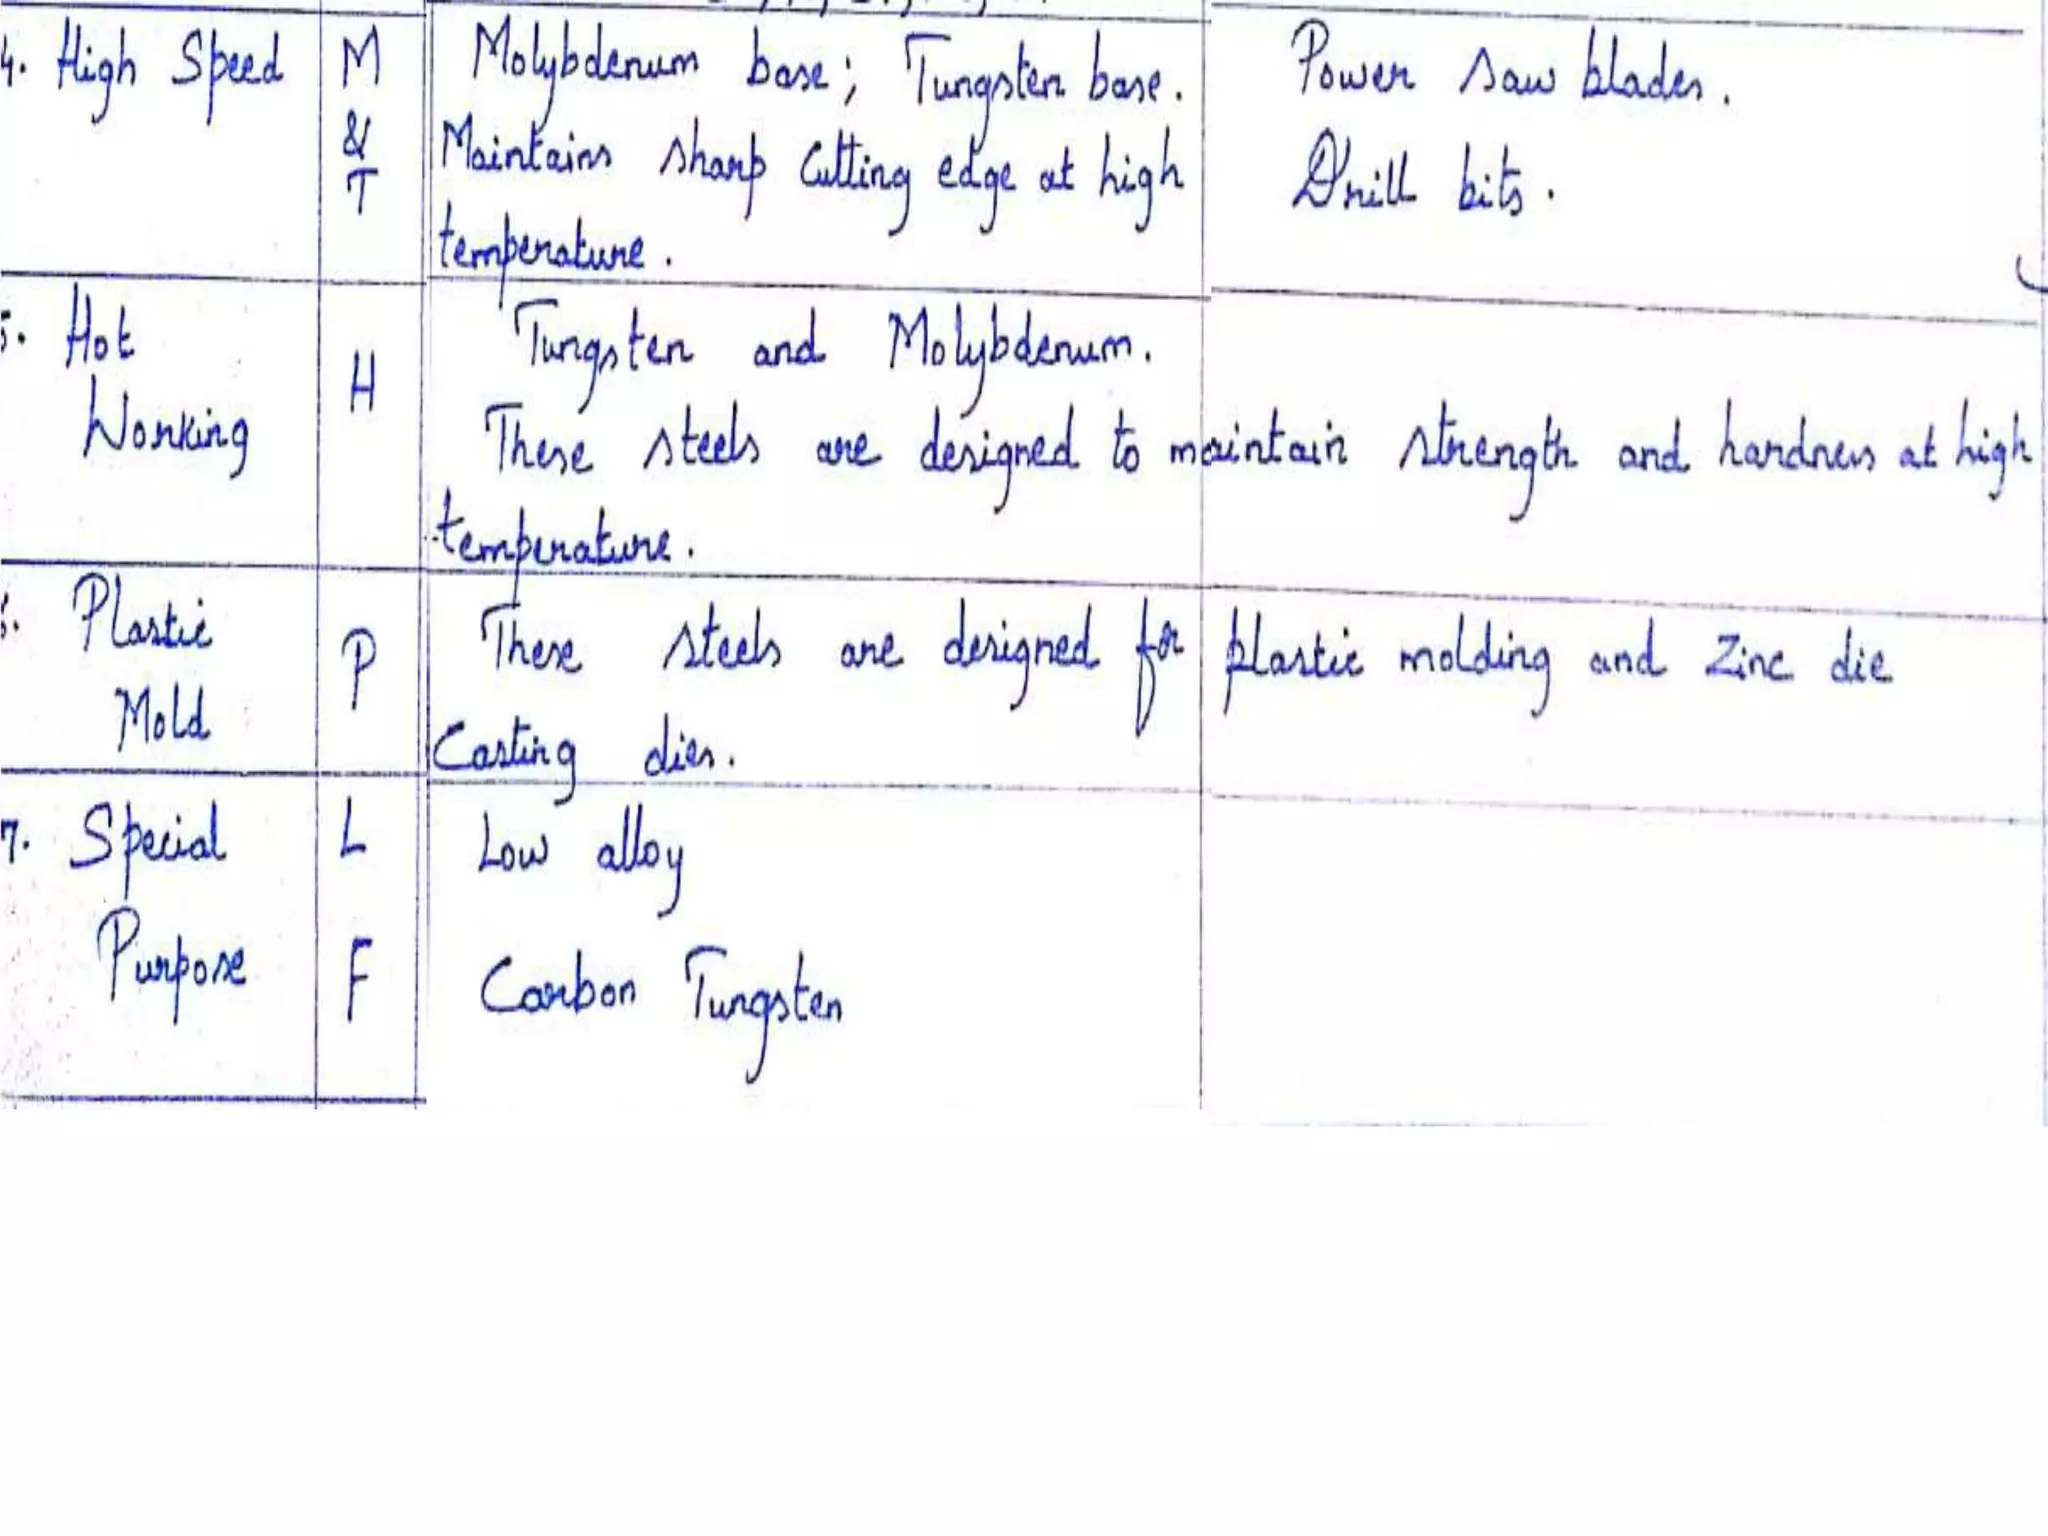 4. High Speed
M
&
T
Molybdenum base; Tungsten base.
Maintains sharp cutting edge at high
temperature.
Power saw blades.
Drill bits.
5. Hot
Working
H
Tungsten and Molybdenum.
These steels are designed to maintain strength and hardness at high
temperature.
6. Plastic
Mold
P
These steels are designed for plastic molding and zinc die
Casting dies.
7. Special
Purpose
L
F
Low alloy
Carbon Tungsten